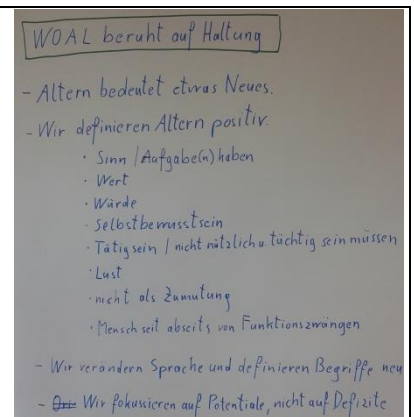 WOAL beruht auf Haltung
- Altern bedeutet etwas Neues.
- Wir definieren Altern positiv.
· Sinn / Aufgabe(n) haben
· Wert
· Würde
· Selbstbewusstsein
· Tätig sein / nicht nützlich u. tüchtig sein müssen
· Lust
· nicht als Zumutung
· Mensch seit abseits von Funktionszwängen
- Wir verändern Sprache und definieren Begriffe neu
- Wir fokussieren auf Potentiale, nicht auf Defizite